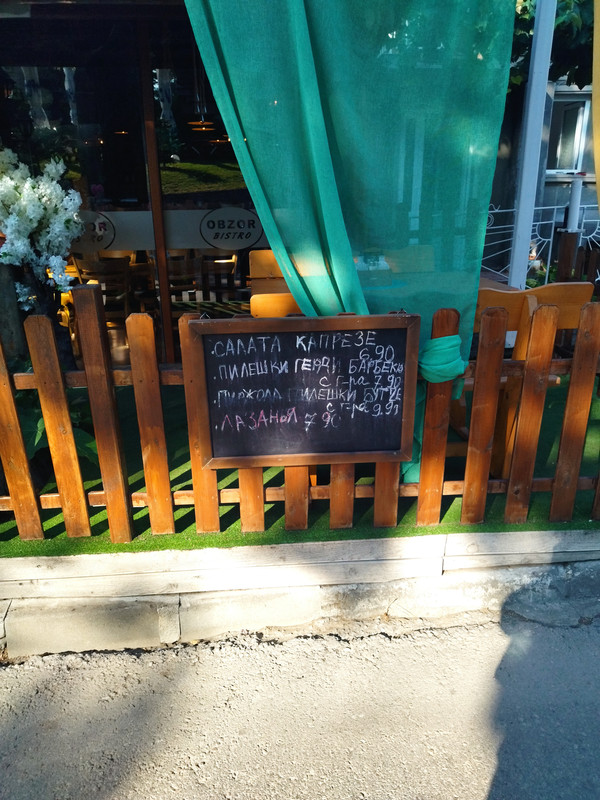 OBZOR
BISTRO
.САЛАТА КАПРЕЗЕ
6.90
.ПИЛЕШКИ ГЕРДИ БАРБЕКЮ
с г-ра 7.90
ПИЛЕШКИ БУТЧЕ
с г-ра 9.91
.ЛАЗАНЬЯ 7 90